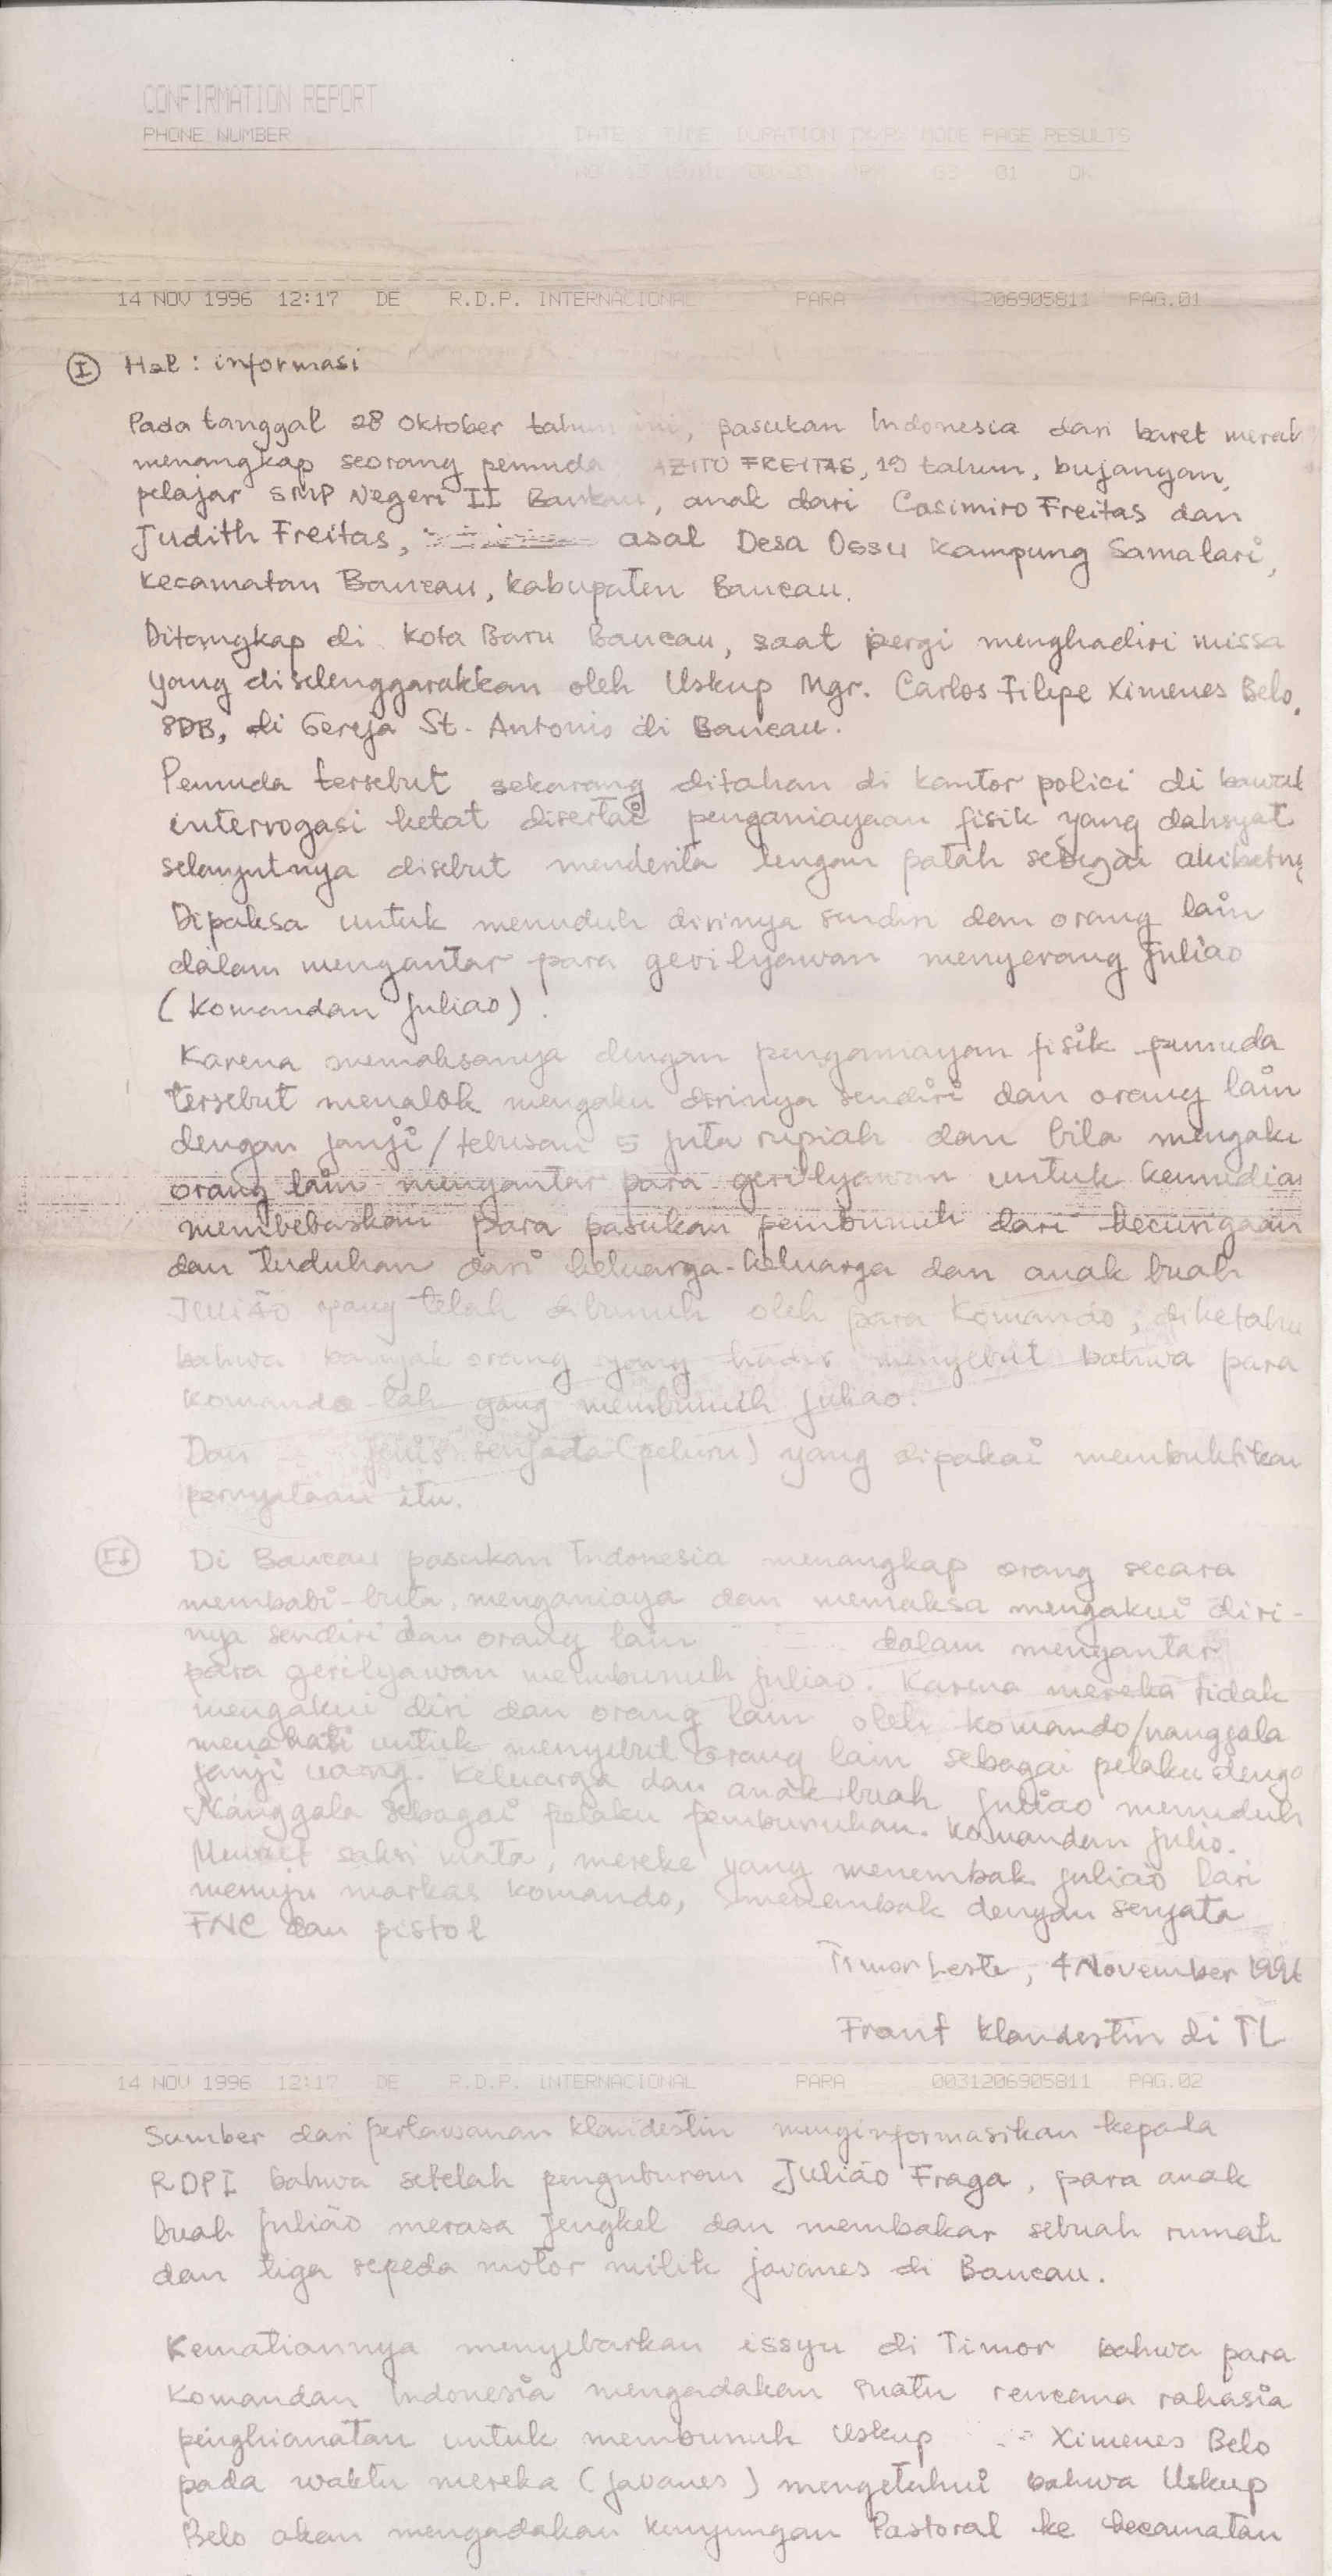 CONFIRMATION REPORT
PHONE NUMBER DATE TIME DURATION MODE PAGE RESULTS
01 OK
14 NOV 1996 12:17 DE R.D.P. INTERNACIONAL PARA 206905811 PAG.01
I Hal : informasi
Pada tanggal 28 Oktober tahun ini, pasukan Indonesia dari baret merah
menangkap seorang pemuda AZITO FREITAS, 19 tahun, bujangan,
pelajar SMP Negeri II Baukau, anak dari Casimiro Freitas dan
Judith Freitas, asal Desa Ossu Kampung Samalari,
Kecamatan Baucau, kabupaten Baucau.
Ditangkap di kota Baru Baucau, saat pergi menghadiri missa
yang diselenggarakkan oleh Uskup Mgr. Carlos Filipe Ximenes Belo,
SDB, di Gereja St. Antonio di Baucau.
Pemuda tersebut sekarang ditahan di kantor polici di bawah
interrogasi ketat disertai penganiayaan fisik yang dahsyat
selanjutnya disebut menderita lengan patah sebagai akibatny
Dipaksa untuk menuduh dirinya sendiri dan orang lain
dalam mengantar para gerilyawan menyerang Juliao
(Komandan Juliao).
Karena memaksanya dengan penganiayan fisik pemuda
tersebut menalok mengaku dirinya sendiri dan orang lain
dengan janji/tebusan 5 juta rupiah dan bila mengaku
orang lain mengantar para gerilyawan untuk kemudian
membebaskan para pasukan pembunuh dari kecurigaan
dan tuduhan dari keluarga-keluarga dan anak buah
Julião yang telah dibunuh oleh para Komando, diketahu
bahwa banyak orang yang hadir menyebut bahwa para
Komando-lah yang membunuh Juliao.
Dan jenis senjata (peluru) yang dipakai membuktikan
pernyataan itu.
II Di Baucau pasukan Indonesia menangkap orang secara
membabi-buta, menganiaya dan memaksa mengakui diri-
nya sendiri dan orang lain dalam mengantar
para gerilyawan membunuh Juliao. Karena mereka tidak
mengakui diri dan orang lain oleh Komando/nanggala
untuk menyebut orang lain sebagai pelaku denga
janji uang. Keluarga dan anak buah Julião menuduh
Nanggala sebagai pelaku pembunuhan Komandan Julio.
saksi mata, mereke yang menembak Julião lari
menuju markas Komando, menembak dengan senjata
FNC dan pistol
Timor Leste, 4 November 1996
Front Klandestin di TL
14 NOV 1996 12:17 DE R.D.P. INTERNACIONAL PARA 0031206905811 PAG.02
Sumber dari perlawanan klandestin menginformasikan kepada
RDPI bahwa setelah penguburan Julião Fraga, para anak
buah Julião merasa jengkel dan membakar sebuah rumah
dan tiga sepeda motor milik javanes di Baucau.
Kematiannya menyebarkan issyu di Timor bahwa para
Komandan Indonesia mengadakan suatu rencana rahasia
penghianatan untuk membunuh Uskup Ximenes Belo
pada waktu mereka (javanes) mengetahui bahwa Uskup
Belo akan mengadakan kunjungan Pastoral ke kecamatan